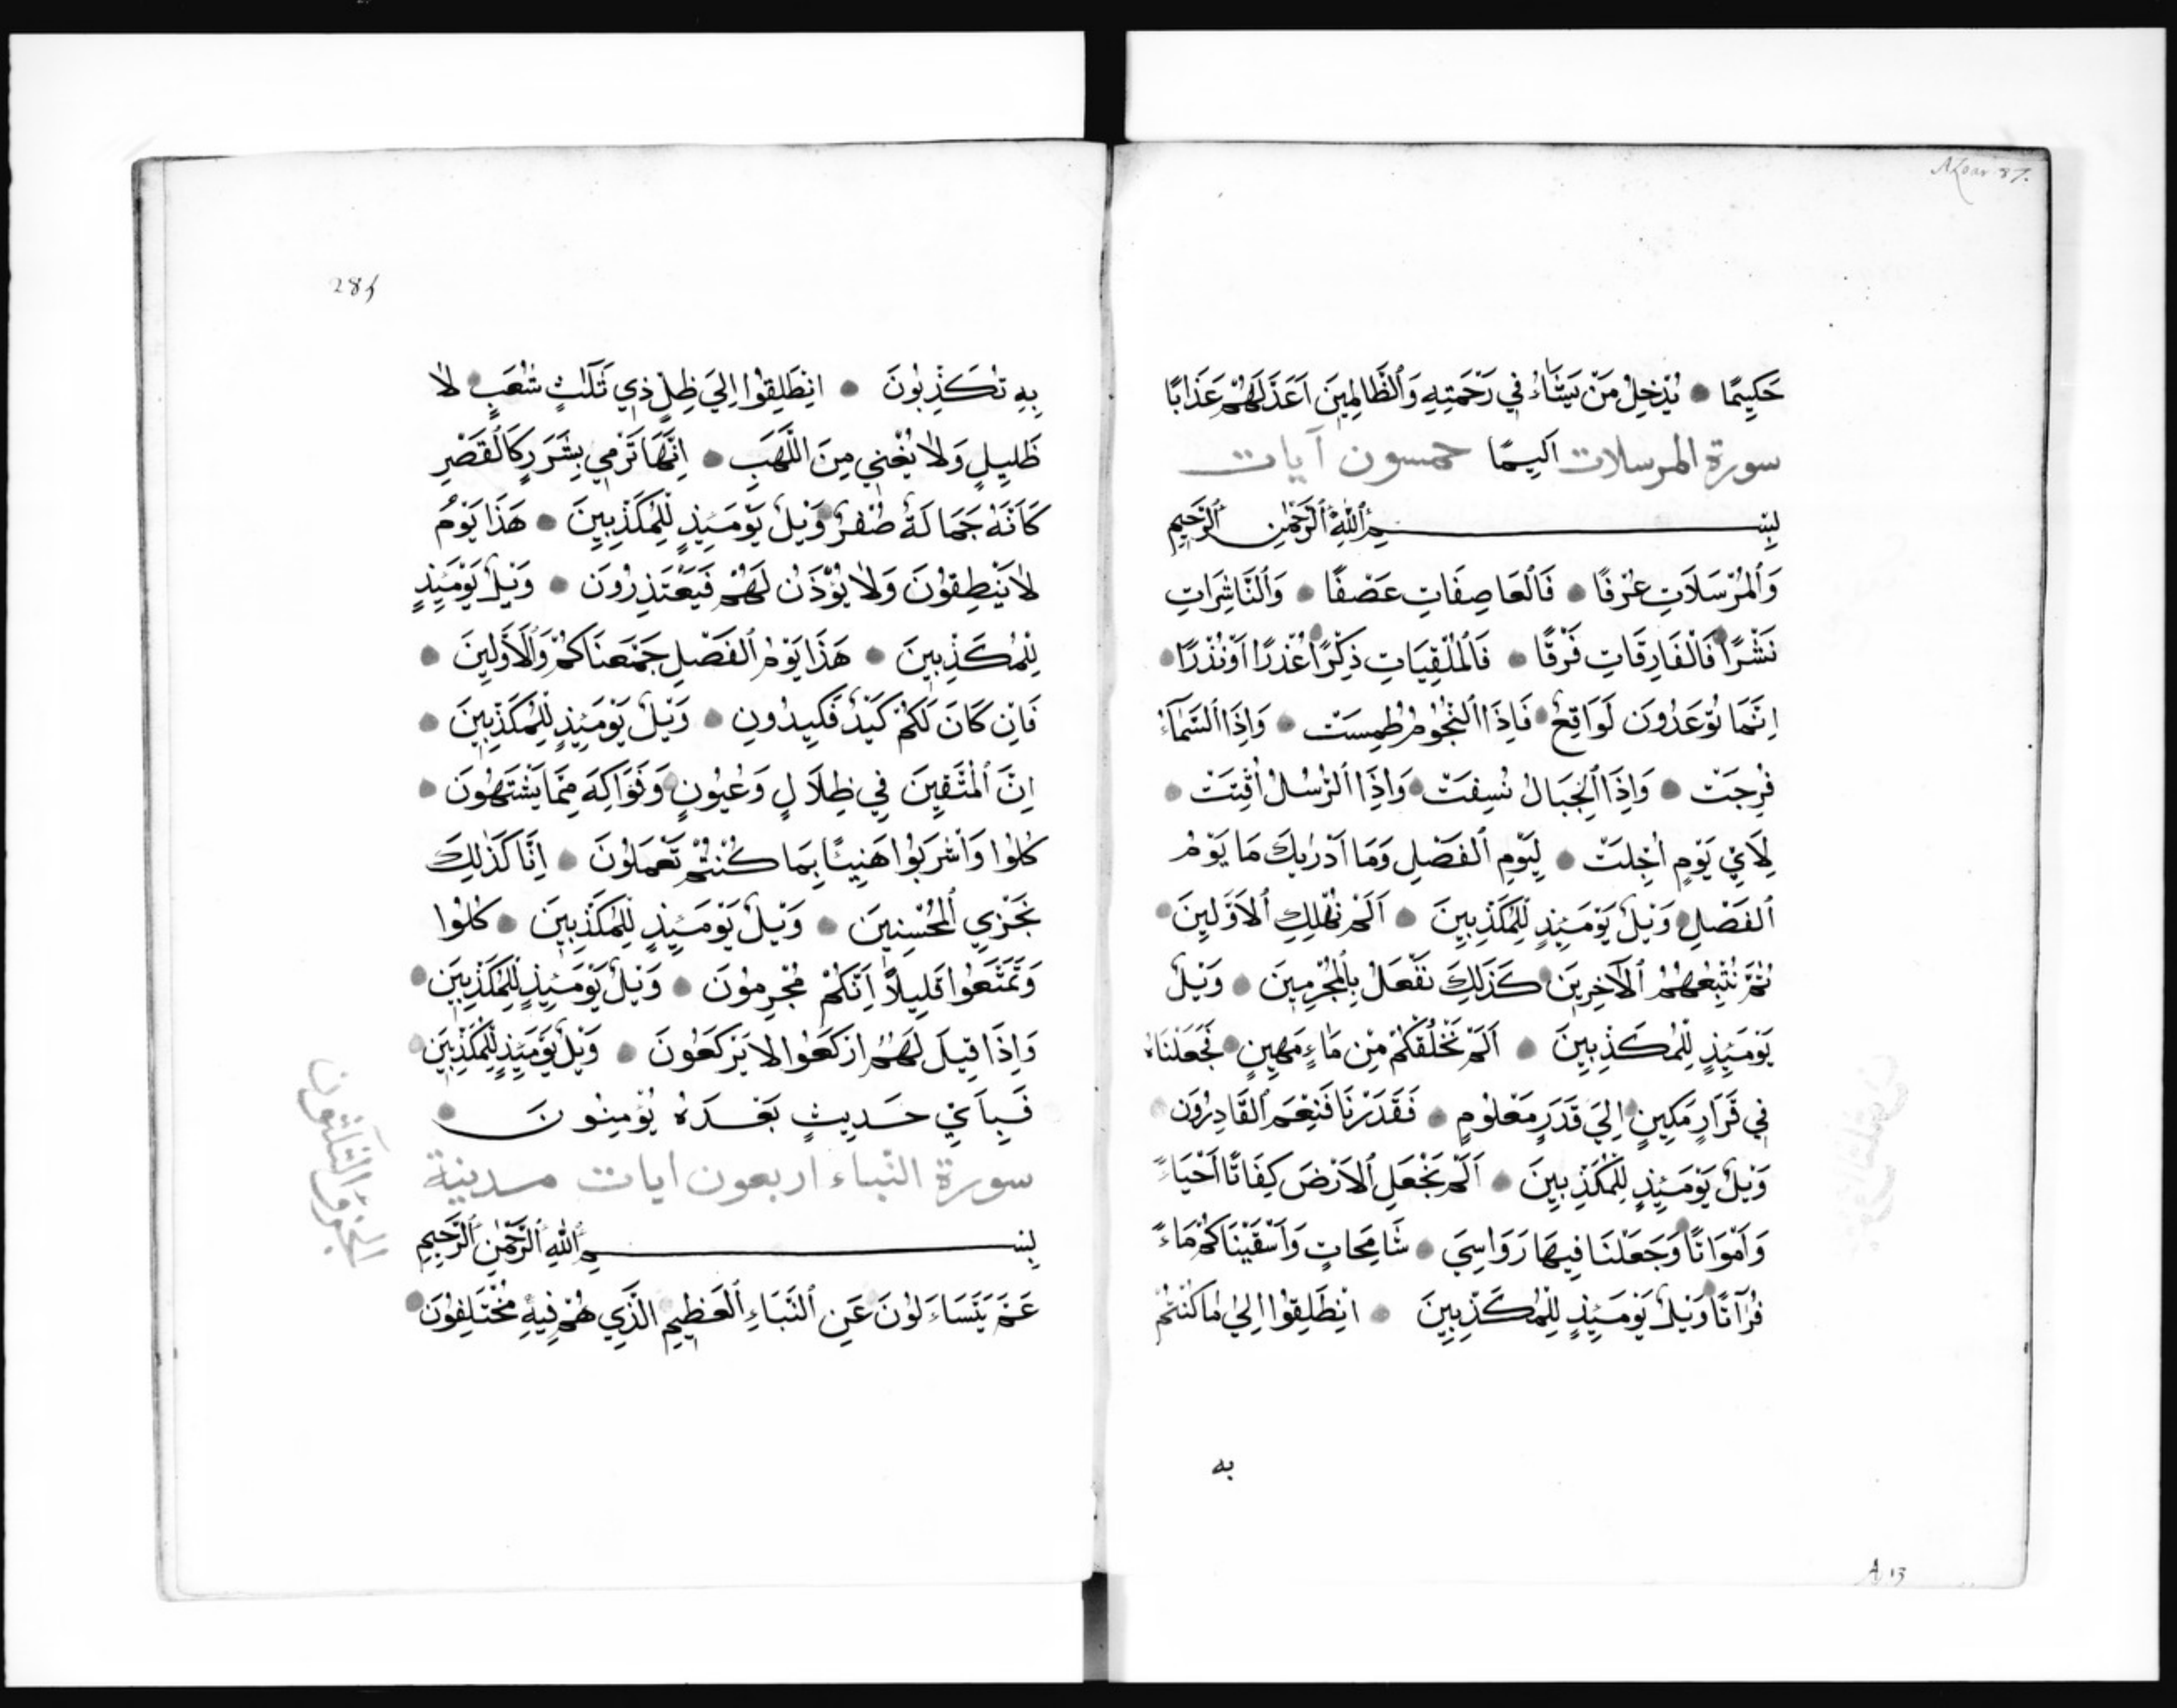 Alcor. 87.
حَكِيمًا • يُدْخِلُ مَنْ يَشَاءُ فِي رَحْمَتِهِ وَٱلظَّالِمِينَ اَعَدَّ لَهُمْ عَذَابًا
سورة المرسلات اَلِيمًا خمسون آيات
بِسْمِ ٱللّٰهِ ٱلرَّحْمٰنِ ٱلرَّحِيمِ
وَٱلمُرْسَلَاتِ عُرْفًا • فَٱلعَاصِفَاتِ عَصْفًا • وَٱلنَّاشِرَاتِ
نَشْرًا • فَالْفَارِقَاتِ فَرْقًا • فَٱلمُلْقِيَاتِ ذِكْرًا • عُذْرًا اَوْ نُذْرًا •
اِنَّمَا تُوعَدُونَ لَوَاقِعٌ • فَاِذَا ٱلنُّجُومُ طُمِسَتْ • وَاِذَا ٱلسَّمَآءُ
فُرِجَتْ • وَاِذَا ٱلجِبَالُ نُسِفَتْ • وَاِذَا ٱلرُّسُلُ اُقِّتَتْ •
لِاَيِّ يَوْمٍ اُجِّلَتْ • لِيَوْمِ ٱلفَصْلِ وَمَا اَدْرٰيكَ مَا يَوْمُ
ٱلفَصْلِ • وَيْلٌ يَوْمَئِذٍ لِلْمُكَذِّبِينَ • اَلَمْ نُهْلِكِ ٱلاَوَّلِينَ •
ثُمَّ نُتْبِعُهُمُ ٱلآخِرِينَ • كَذَلِكَ نَفْعَلُ بِٱلمُجْرِمِينَ • وَيْلٌ
يَوْمَئِذٍ لِلْمُكَذِّبِينَ • اَلَمْ نَخْلُقْكُمْ مِنْ مَاءٍ مَهِينٍ • فَجَعَلْنَاهُ
فِي قَرَارٍ مَكِينٍ • اِلَي قَدَرٍ مَعْلُومٍ • فَقَدَرْنَا فَنِعْمَ ٱلقَادِرُونَ •
وَيْلٌ يَوْمَئِذٍ لِلْمُكَذِّبِينَ • اَلَمْ نَجْعَلِ ٱلاَرْضَ كِفَاتًا اَحْيَاءً
وَاَمْوَاتًا • وَجَعَلْنَا فِيهَا رَوَاسِيَ • شَامِحَاتٍ وَاَسْقَيْنَاكُمْ مَاءً
فُرَآتًا • وَيْلٌ يَوْمَئِذٍ لِلْمُكَذِّبِينَ • انْطَلِقُوا اِلَي مَا كُنْتُمْ
به
A 13
بِهِ تُكَذِّبُونَ • انْطَلِقُوا اِلَيَ ظِلٍّ ذِي ثَلٰثِ شُعَبٍ • لا
ظَلِيلٍ وَلا يُغْنِي مِنَ اللَّهَبِ • اِنَّهَا تَرْمِي بِشَرَرٍ كَٱلْقَصْرِ
كَاَنَّهُ جَمَالَةٌ صُفْرٌ • وَيْلٌ يَوْمَئِذٍ لِلْمُكَذِّبِينَ • هَذَا يَوْمُ
لا يَنْطِقُونَ وَلا يُؤْذَنُ لَهُمْ فَيَعْتَذِرُونَ • وَيْلٌ يَوْمَئِذٍ
لِلْمُكَذِّبِينَ • هَذَا يَوْمُ ٱلفَصْلِ جَمَعْنَاكُمْ وَٱلاَوَّلِينَ •
فَاِنْ كَانَ لَكُمْ كَيْدٌ فَكِيدُونِ • وَيْلٌ يَوْمَئِذٍ لِلْمُكَذِّبِينَ •
اِنَّ ٱلْمُتَّقِينَ فِي ظِلَالٍ وَعُيُونٍ • وَفَوَاكِهَ مِمَّا يَشْتَهُونَ •
كُلُوا وَٱشْرَبُوا هَنِيئًا بِمَا كُنْتُمْ تَعْمَلُونَ • اِنَّا كَذٰلِكَ
نَجْزِي ٱلمُحْسِنِينَ • وَيْلٌ يَوْمَئِذٍ لِلْمُكَذِّبِينَ • كُلُوا
وَتَمَتَّعُوا قَلِيلاً اِنَّكُمْ مُجْرِمُونَ • وَيْلٌ يَوْمَئِذٍ لِلْمُكَذِّبِينَ •
وَاِذَا قِيلَ لَهُمُ ارْكَعُوا لا يَرْكَعُونَ • وَيْلٌ يَوْمَئِذٍ لِلْمُكَذِّبِينَ •
فَبِاَيِّ حَدِيثٍ بَعْدَهُ يُؤْمِنُونَ •
سورة النّباء اربعون ايات مدنية
بِسْمِ ٱللّٰهِ ٱلرَّحْمٰنِ ٱلرَّحِيمِ
عَمَّ يَتَسَاءَلُونَ عَنِ ٱلنَّبَاءِ ٱلْعَظِيمِ الَّذِي هُمْ فِيهِ مُخْتَلِفُونَ •
الجزؤ الثلثون